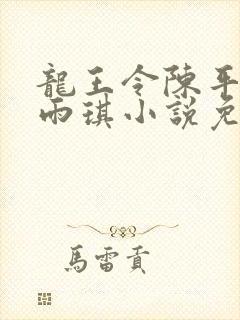 龍王令陳平
雨琪小說免
馬雷貢